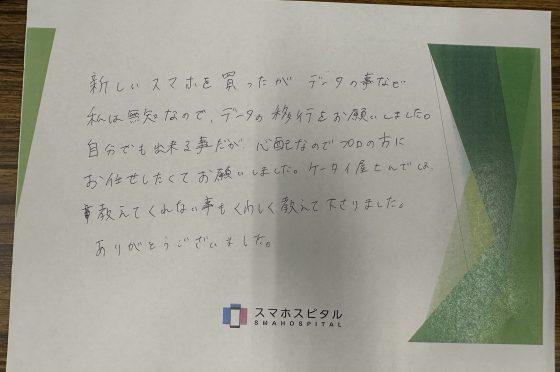 新しいスマホを買ったが データの事など
私は無知なので、データの移行をお願いしました。
自分でも出来る事だが 心配なのでプロの方に
お任せしたくてお願いしました。ケータイ屋さんでは、
教えてくれない事もくわしく教えて下さりました。
ありがとうございました。
スマホスピタル
SMAHOSPITAL